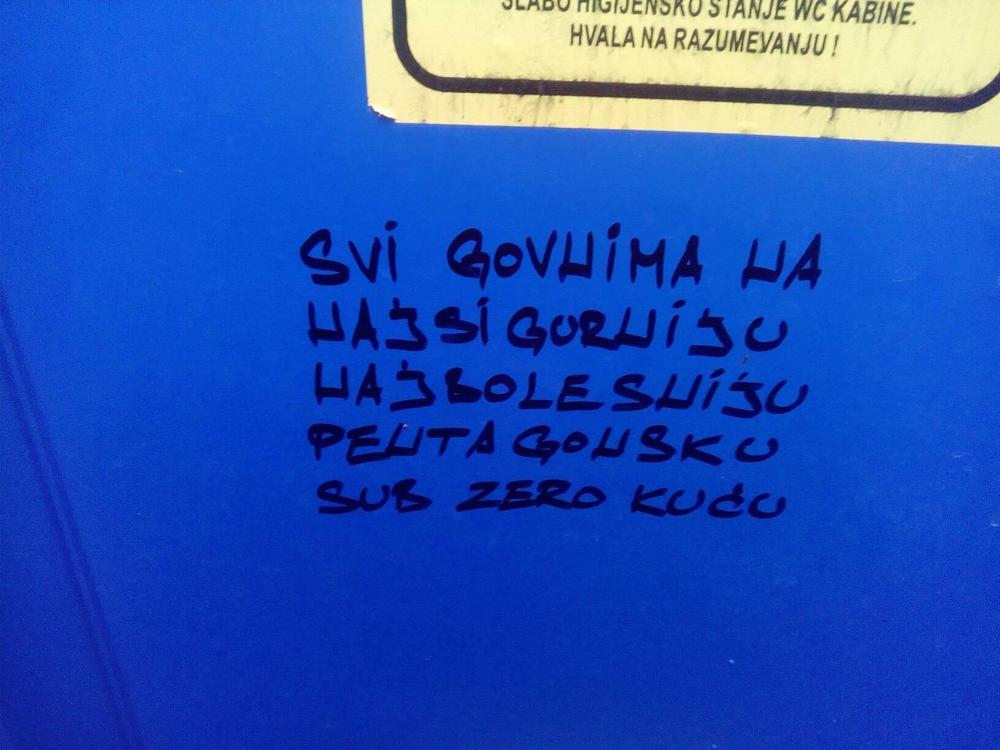 SLABO HIGIJENSKO STANJE WC KABINE.
HVALA NA RAZUMEVANJU !
SVI GOVNIMA NA
NAJSIGURNIJU
NAJBOLESNIJU
PENTAGONSKU
SUB ZERO KUĆU